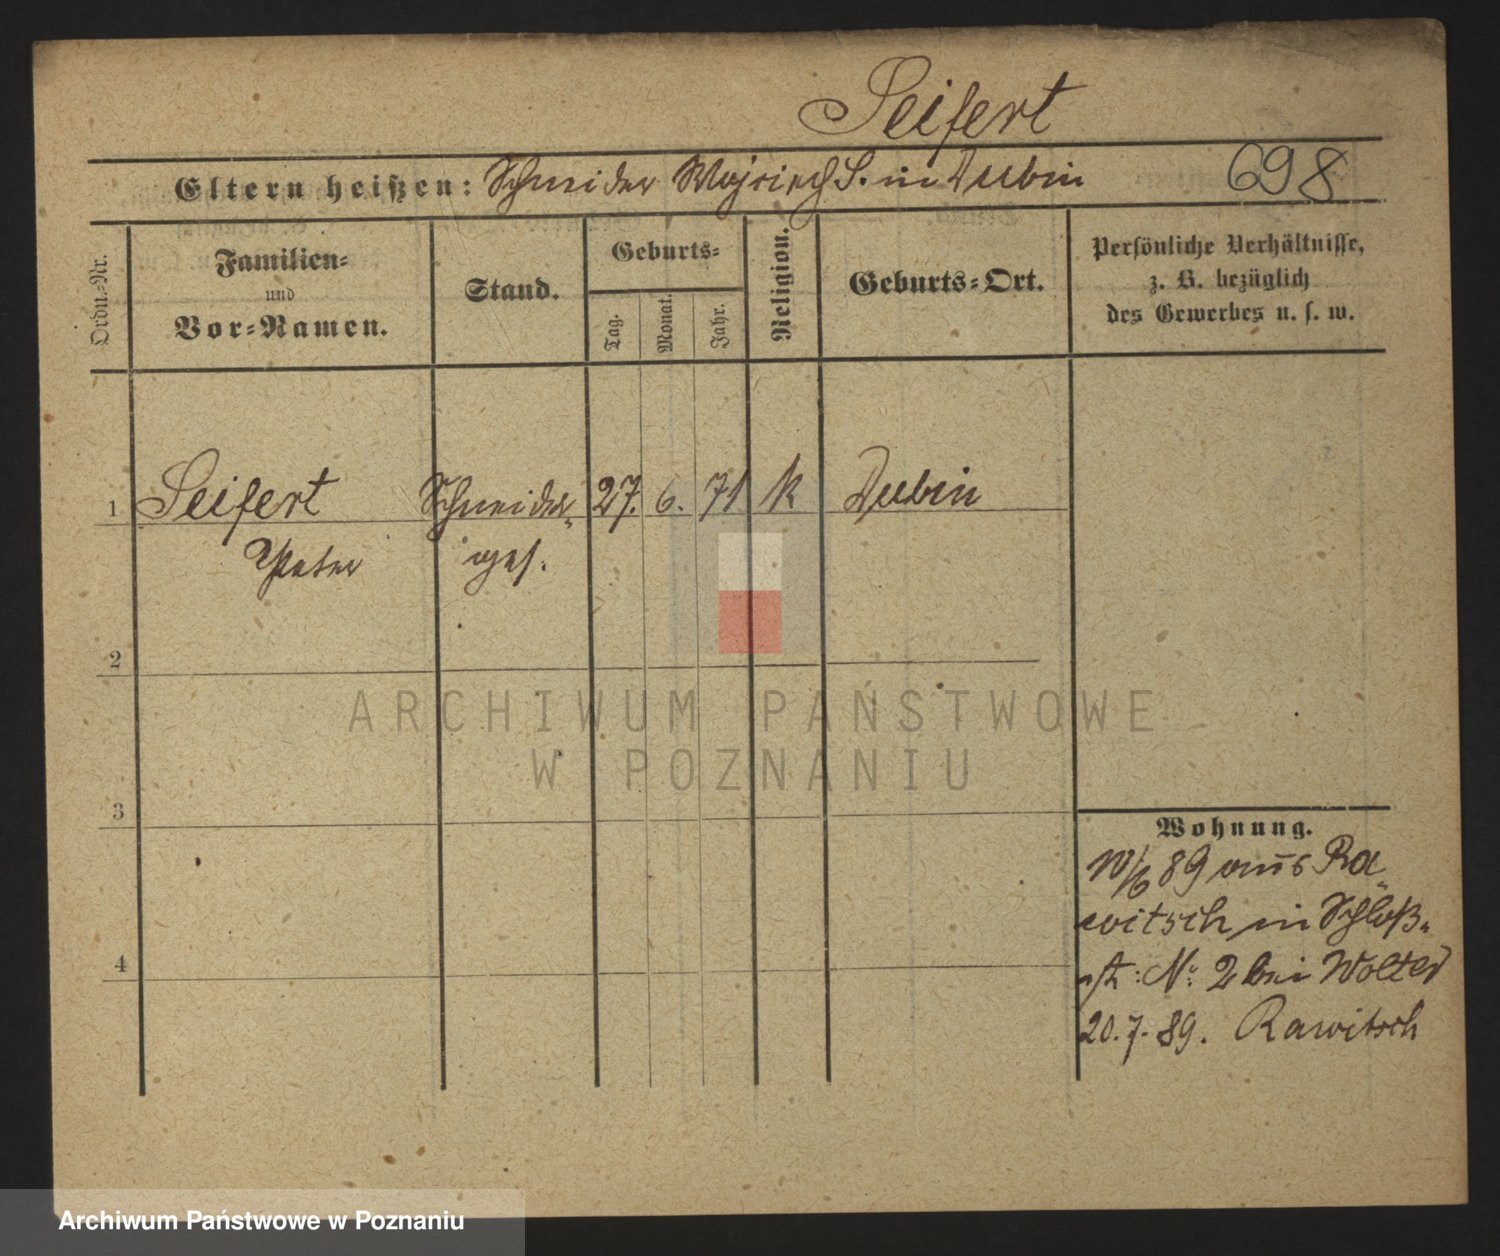 Seifert
Eltern heißen: Schneider Wojciech S. in Dubin 698
Ordn.-Nr.
Familien-
und
Vor-Namen.
Stand.
Geburts-
Tag.
Monat.
Jahr.
Religion.
Geburts-Ort.
Persönliche Verhältnisse,
z. B. bezüglich
des Gewerbes u. s. w.
1 Seifert Schneider- 27. 6. 71 k Dubin
Peter ges.
2
3
4
Wohnung.
89 aus Ra-
witsch in Schloß-
st: No: 2 bei Wolter
20. 7. 89. Rawitsch
ARCHIWUM PAŃSTWOWE
W POZNANIU
Archiwum Państwowe w Poznaniu